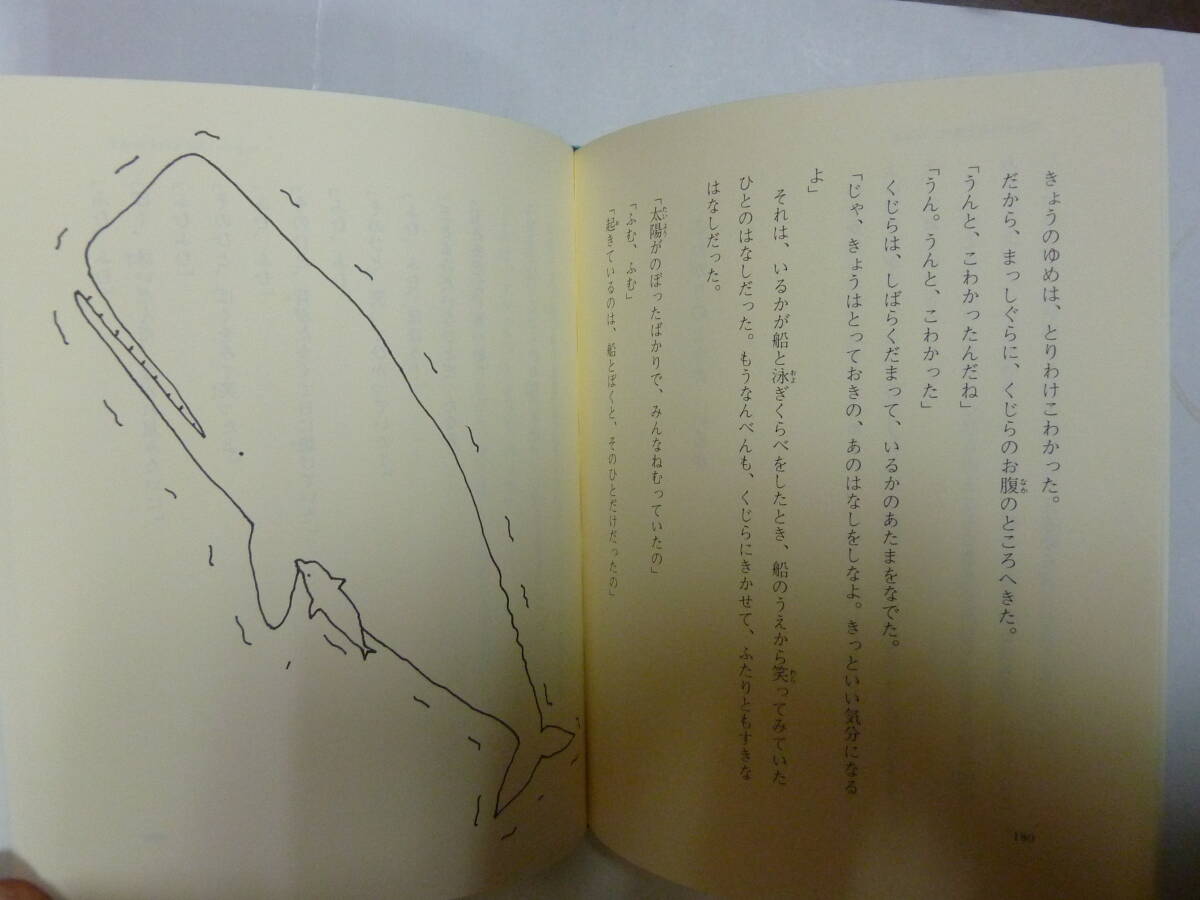 きょうのゆめは、とりわけこわかった。
だから、まっしぐらに、くじらのお腹のところへきた。
「うんと、こわかったんだね」
「うん。うんと、こわかった」
くじらは、しばらくだまって、いるかのあたまをなでた。
「じゃ、きょうはとっておきの、あのはなしをしなよ。きっといい気分になる
よ」
それは、いるかが船と泳ぎくらべをしたとき、船のうえから笑ってみていた
ひとのはなしだった。もうなんべんも、くじらにきかせて、ふたりともすきな
はなしだった。
「太陽がのぼったばかりで、みんなねむっていたの」
「ふむ、ふむ」
「起きているのは、船とぼくと、そのひとだけだったの」
180